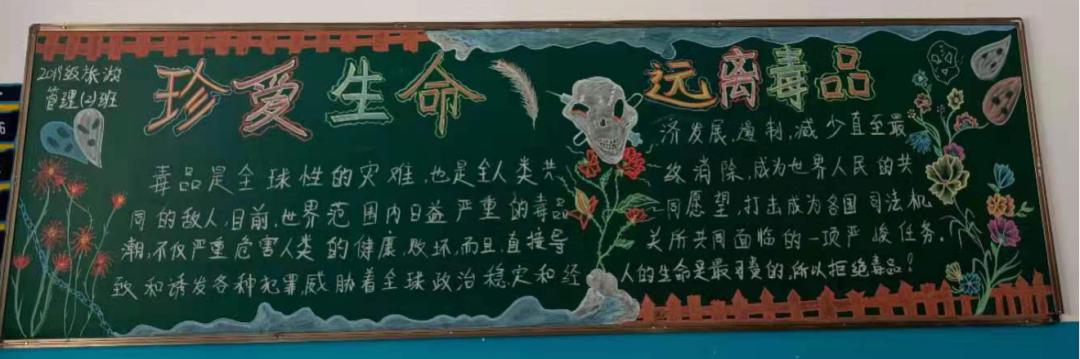 2019级旅游
管理(2)班
珍爱生命
远离毒品
毒品是全球性的灾难,也是全人类共
同的敌人,目前,世界范围内日益严重的毒品
潮,不仅严重危害人类的健康,败坏,而且,直接导
致和诱发各种犯罪,威胁着全球政治稳定和经
济发展,遏制,减少直至最
终消除,成为世界人民的共
同愿望,打击成为各国司法机
关所共同面临的一项严峻任务.
人的生命是最可贵的,所以拒绝毒品!